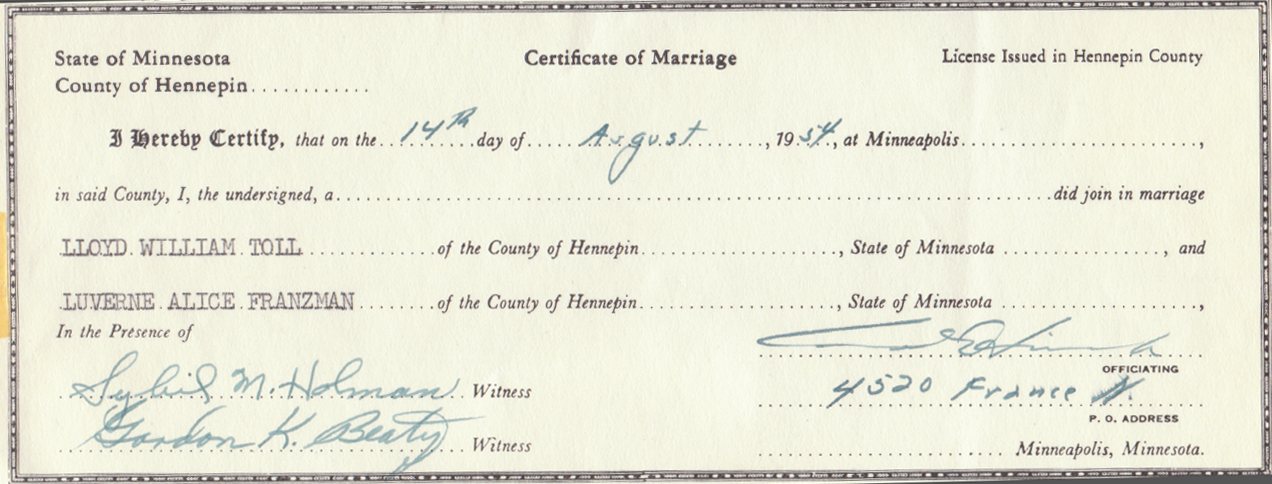 State of Minnesota Certificate of Marriage License Issued in Hennepin County
County of Hennepin............
I Hereby Certify, that on the 14th day of August, 1954, at Minneapolis,
in said County, I, the undersigned, a did join in marriage
LLOYD WILLIAM TOLL of the County of Hennepin, State of Minnesota, and
LUVERNE ALICE FRANZMAN of the County of Hennepin, State of Minnesota,
In the Presence of
OFFICIATING
Sybil M. Holman Witness 4520 France
P. O. ADDRESS
Gordon K. Beaty Witness Minneapolis, Minnesota.